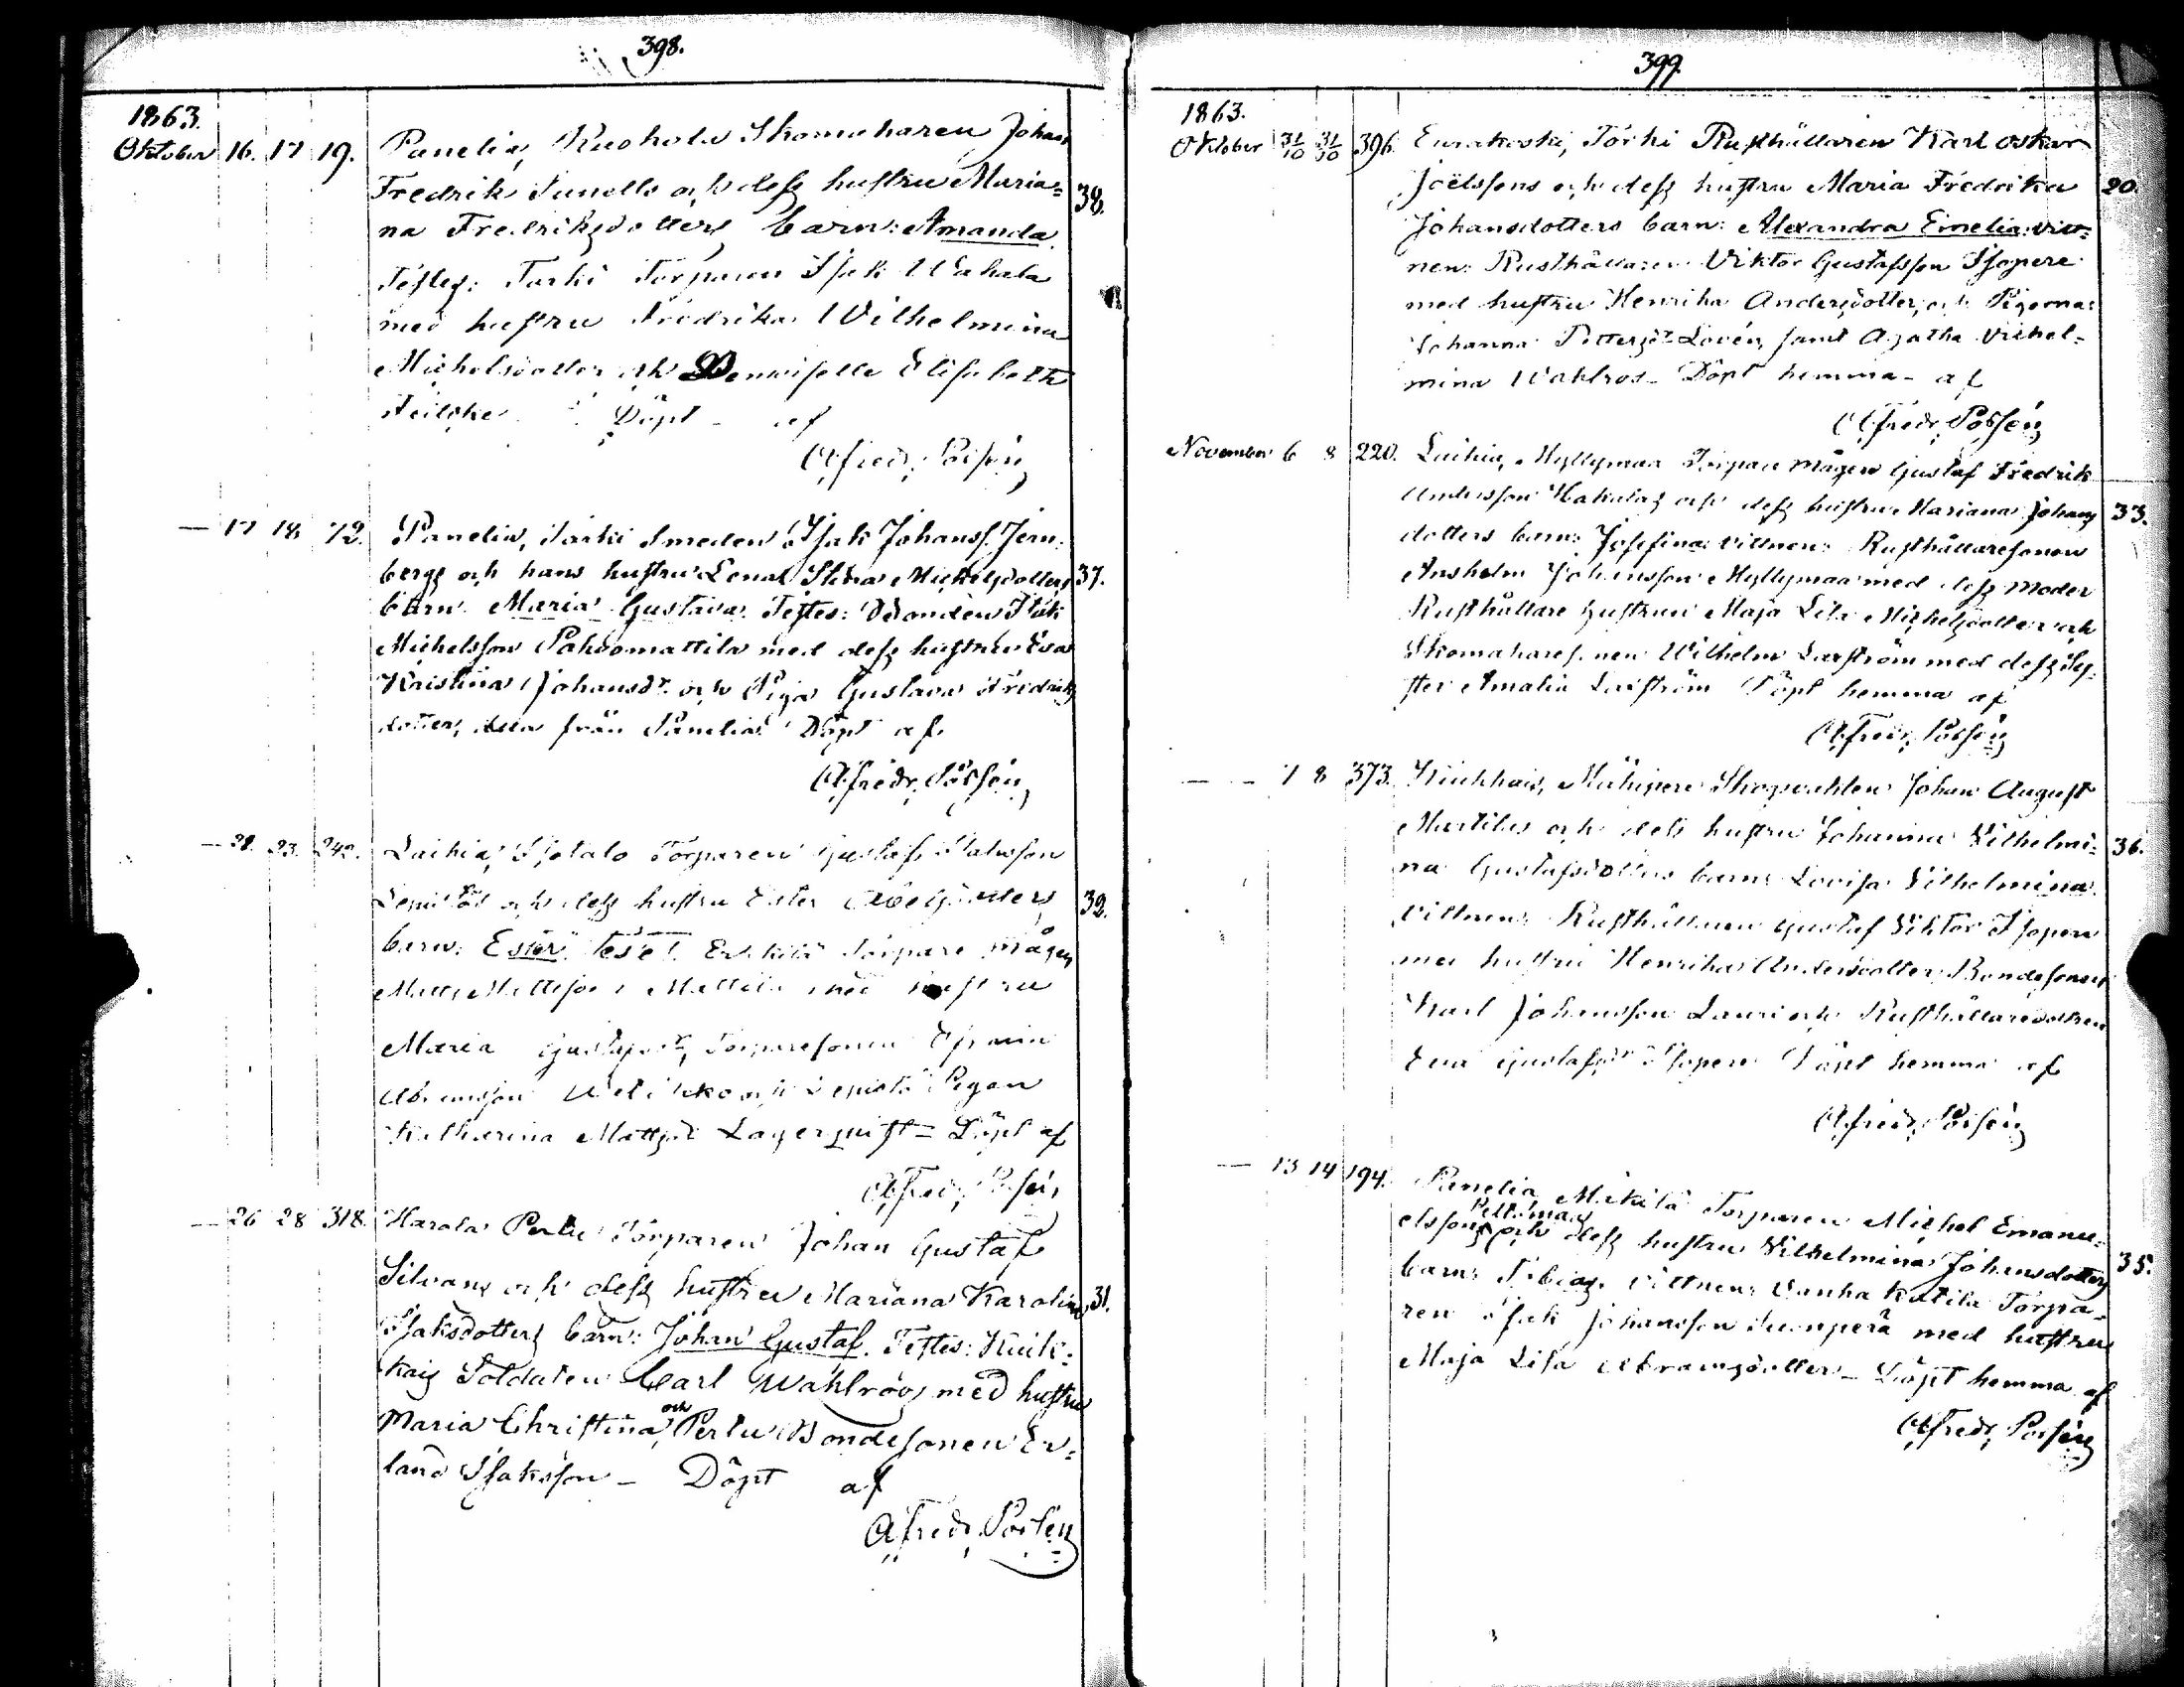 398.
1863.
Oktober 16. 17 19. Panelia, Ruohola Skomakaren Johan
Fredrik Sunells och dess hustru Maria=
na Fredriksdotters barn: Amanda. 38.
Testes: Tarki Torparen Isak Uhala
med hustru Fredrika Wilhelmina
Michelsdotter och Demoiselle Elisabeth
Döpt af
Alfredr. Porsén
— 17 18 72. Panelia, Tarki Smeden Isak Johanss. Jern-
bergs och hans hustru Lena Stina Mickelsdotters 37.
barn Maria Gustava. Testes: Bonden Isak
Michelsson Pahdomattila med dess hustru Eva
Kristina Johansdr. och Piga Gustava Fredriks
dotter, från Panelia. Döpt af
Alfredr. Porsén
— 23. 242. Laihia, Isotalo Torparen Gustaf Isaksson
Lepistös och dess hustru Ester Abelsdotters 32.
barn: Ester. test. Eskila Torpare mågen
Matts Mattsson Mattila med hustru
Maria Gustafsdr, Torparesonen Efraim
och Lepistö Pigan
Katharina Mattsdr Lagerquist = Döpt af
Alfredr. Porsén
— 26 28 318. Harola Perttu Torparen Johan Gustaf
Silvans och dess hustru Mariana Karolina 31.
Isaksdotters barn: Johan Gustaf. Testes: Kiuk-
kais Soldaten Carl Wahlroos med hustru
Maria Christina, och Perttu Bondesonen Er=
land Isaksson — Döpt af
Alfredr. Porsén
399.
1863.
Oktober 31/10 31/10 396. Eurakoski, Törki Rusthållaren Karl Oskar
Joëlssons och dess hustru Maria Fredrika 20.
Johansdotters barn: Alexandra Emelia: vitt=
nen: Rusthållaren Viktor Gustafsson Isopere
med hustru Henrika Andersdotter, och Pigorna:
Johanna Pettersdr Lovén, samt Agatha Vilhel=
mina Wahlros — Döpt hemma — af
Alfredr. Porsén
November 6 8 220. Laihia, Myllymaa Torpare mågen Gustaf Fredrik
Andersson Hakalas och dess hustru Mariana Johans 33.
dotters barn: Josefina: vittnen: Rusthållaresonen
Ansholm Johansson Myllymaa med dess moder
Rusthållare hustrun Maja Lisa Michelsdotter och
Skomakares. nen Wilhelm Laxström med dess Sy-
ster Amalia Laxström Döpt hemma af
Alfredr. Porsén
— — 7 8 373. Kiukkais, Mähipere Skogvakten Johan August
Martilas och dess hustru Johanna Vilhelmi- 36.
na Gustafsdotters barn: Lovisa Vilhelmina.
Vittnen: Rusthållaren Gustaf Viktor Isopere
med hustru Henrika Andersdotter, Bondesonen
Karl Johansson Lauri och Rusthållaredottren
Eva Gustafsdr Isopere Döpt hemma af
Alfredr. Porsén
— 13 14 194. Panelia, Mikilä Torparen Michel Emanu-
elssons Peltomaas och dess hustru Vilhelmina Johansdotters 35.
barn: Tobias. Vittnen: Vanhakatila Torpa-
ren Isak Johansson Suonperä med hustru
Maja Lisa Abramsdotter — Döpt hemma af
Alfredr. Porsén